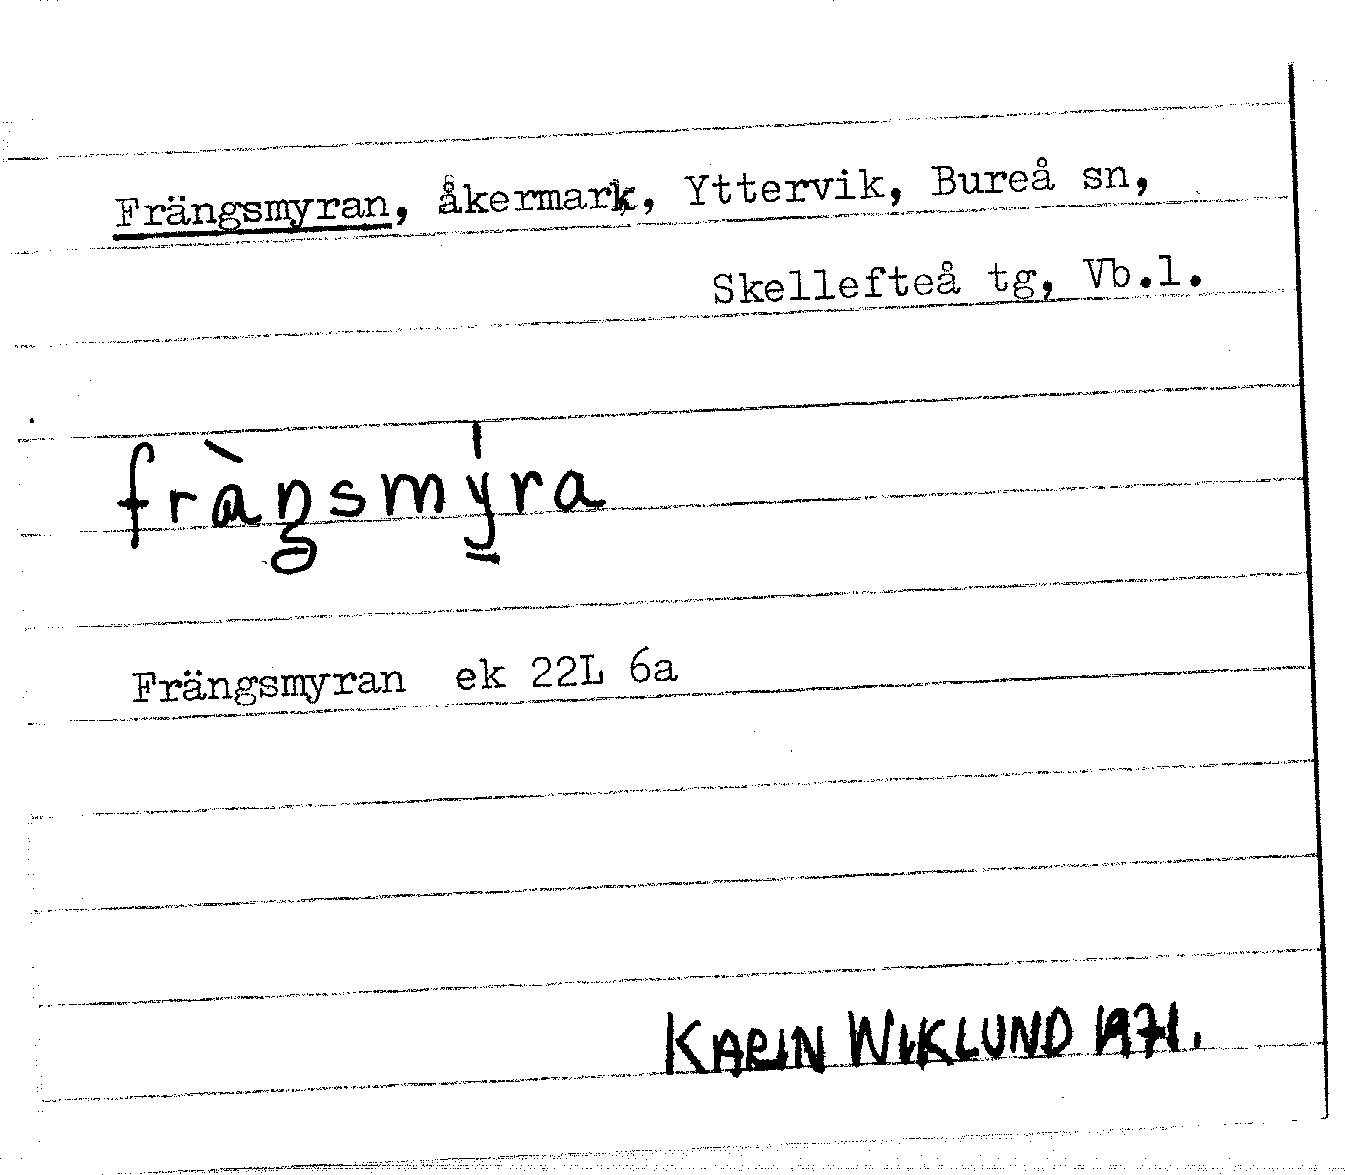 Frängsmyran, åkermark, Yttervik, Bureå sn,
Skellefteå tg, Vb.l.
fràŋsmýra
Frängsmyran ek 22L 6a
KARIN WIKLUND 1971.